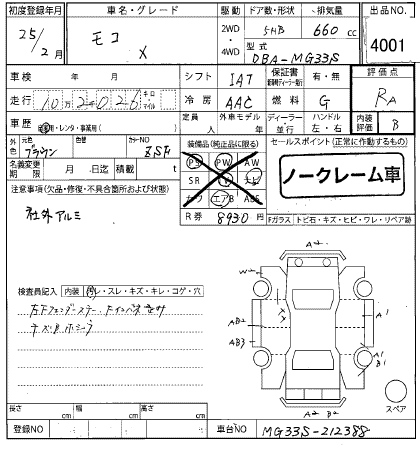 初度登録年月 車名・グレード 駆動 ドア数・形状 排気量 出品NO
25/2月 モコ X 2WD・4WD 5HB 660 cc 4001
型式 DBA-MG33S
車検 年 月 シフト IAT 保証書 有・無 評価点
走行 10万2026 キロ マイル 冷房 AAC 燃料 G RA
車歴 自家用・レンタ・事業用( ) 定員 人 外車モデル 年 ディーラー・並行 ハンドル 左・右 内装評価 B
外色 元色 ブラウン 色替 カラーNO ZSF
名義変更期限 月 日迄 積載 t
装備品(純正品に限る)
PS PW AW
SR TV ナビ
カワ エアB ABS
R券 8930円
セールスポイント(正常に作動するもの)
ノークレーム車
注意事項(欠品・修復・不具合箇所および状態)
社外アルミ
Fガラス トビ石・キズ・ヒビ・ワレ・リペア跡
A2
W2
A1
AB2
AB3
A1
B1
A2 B2
スペア
検査員記入 内装 ヨゴレ・スレ・キズ・キレ・コゲ・穴
長さ cm 幅 cm 高さ cm
登録NO 車台NO MG33S-212388